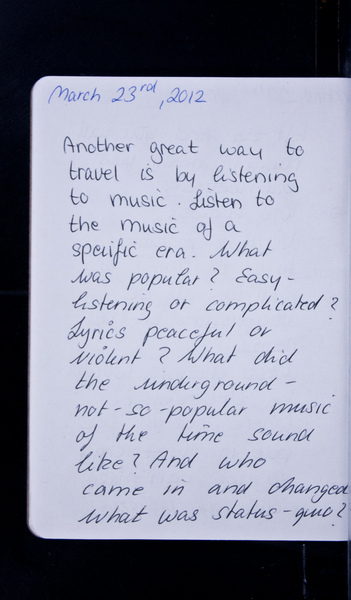 March 23rd, 2012
Another great way to
travel is by listening
to music. Listen to
the music of a
specific era. What
was popular? Easy-
listening or complicated?
Lyrics peaceful or
violent? What did
the underground-
not-so-popular music
of the time sound
like? And who
came in and changed
what was status-quo?